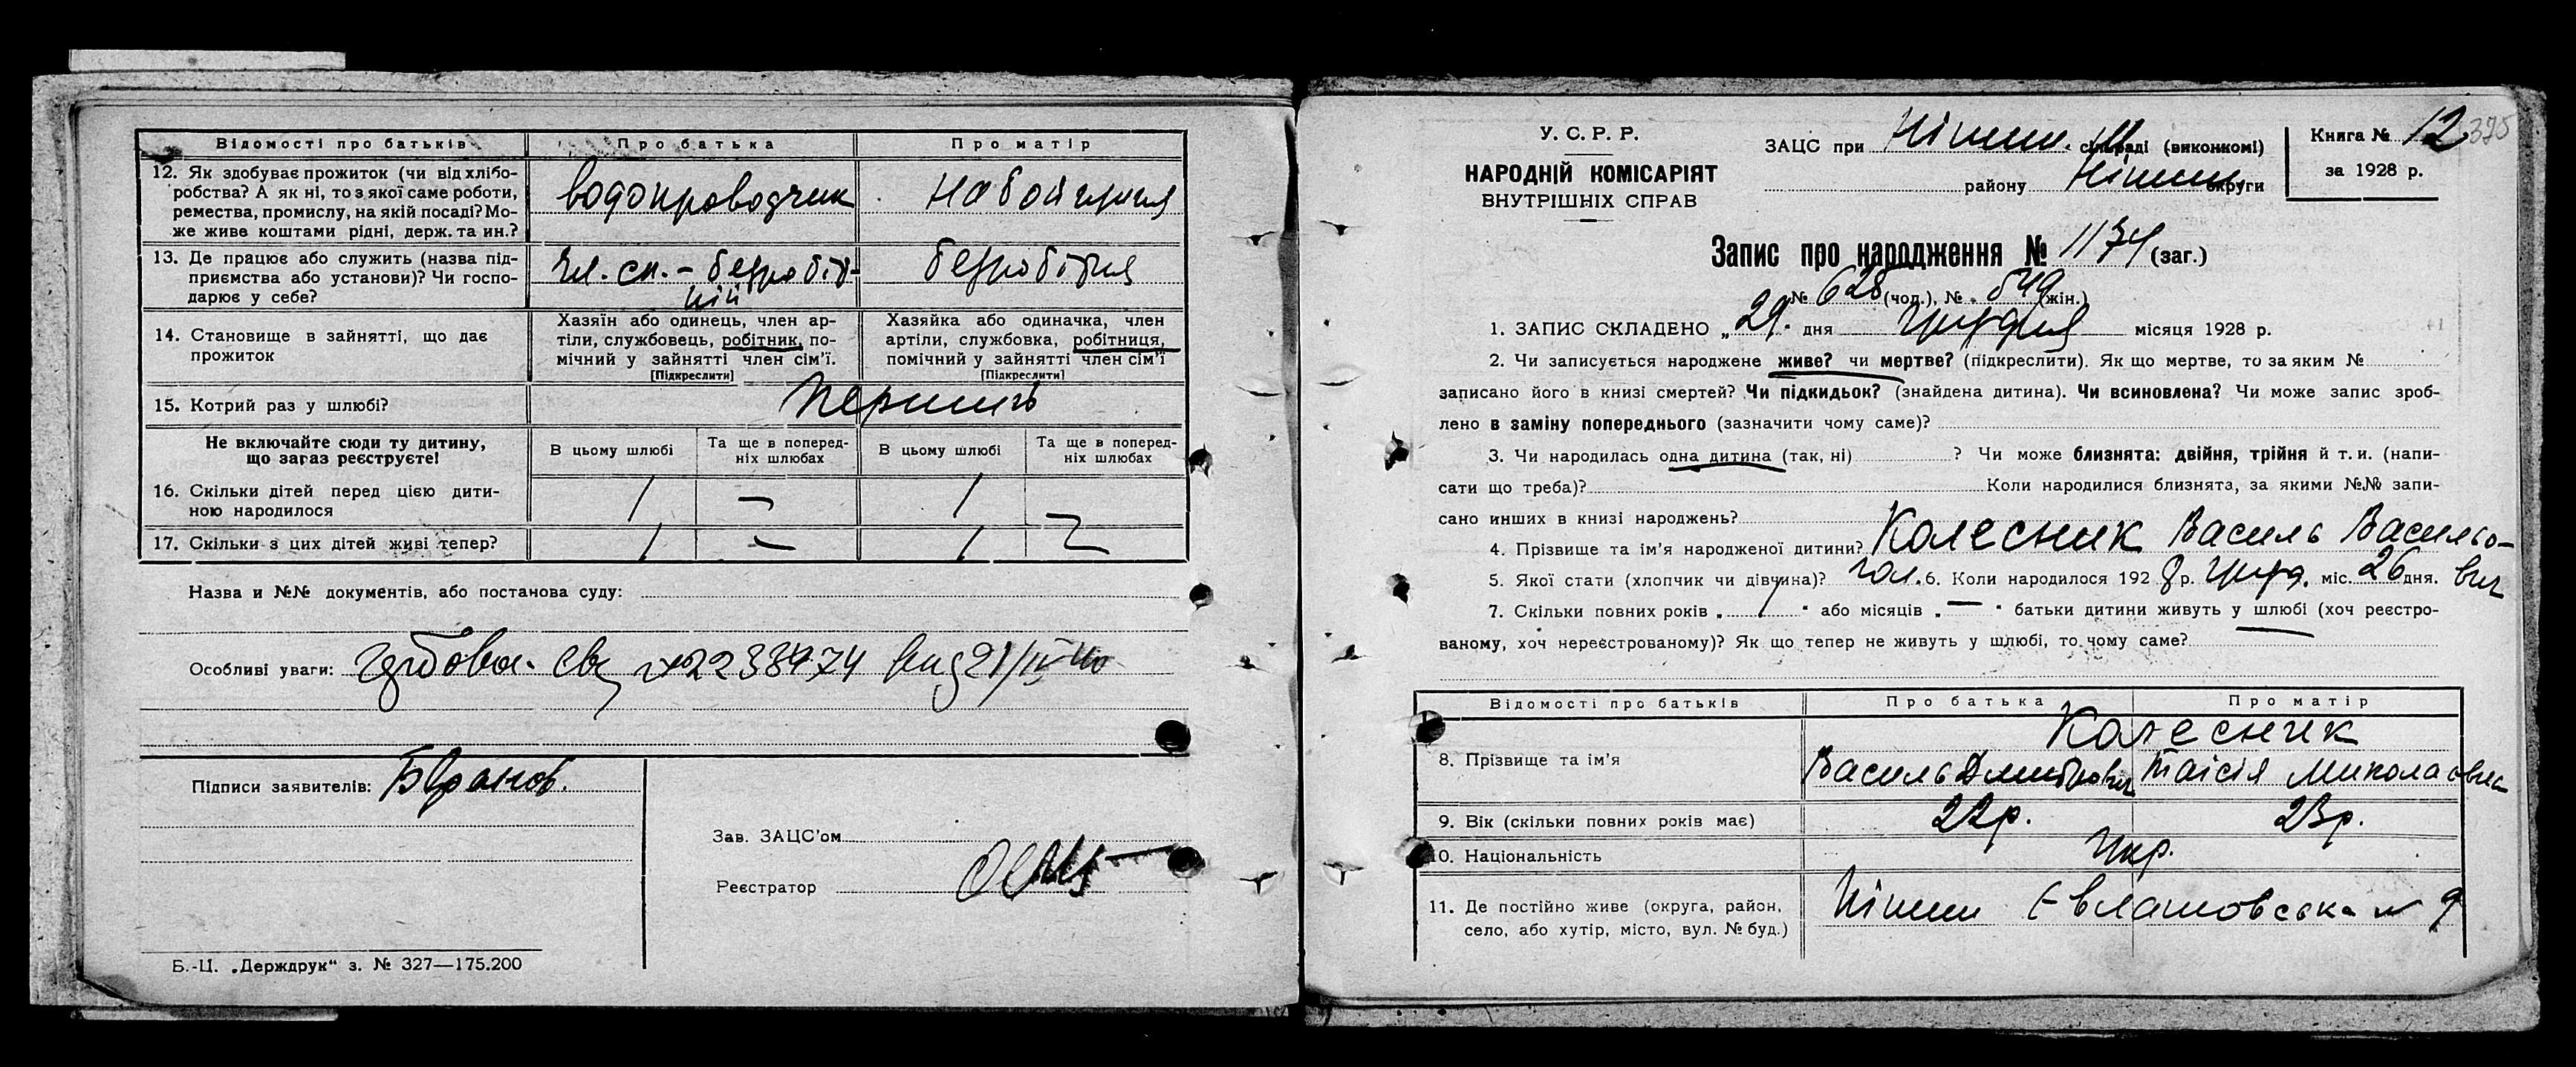 Відомості про батьків
Про батька
Про матір
12. Як здобуває прожиток (чи від хлібо-
робства? А як ні, то з якої саме роботи,
ремества, промислу, на якій посаді? Мо-
же живе коштами рідні, держ. та ин.?
водопроводчик
набойщиця
13. Де працює або служить (назва під-
приємства або установи)? Чи госпо-
дарює у себе?
Чл. сп. – безробіт-
ній
безробітня
14. Становище в зайнятті, що дає
прожиток
Хазяїн або одинець, член ар-
тіли, службовець, робітник, по-
мічний у зайнятті член сім'ї.
[Підкреслити]
Хазяйка або одиначка, член
артіли, службовка, робітниця,
помічний у зайнятті член сім'ї
[Підкреслити]
15. Котрий раз у шлюбі?
Першый
Не включайте сюди ту дитину,
що зараз реєструєте!
В цьому шлюбі
Та ще в поперед-
ніх шлюбах
В цьому шлюбі
Та ще в поперед-
ніх шлюбах
16. Скільки дітей перед цією дити-
ною народилося
1 – 1 –
17. Скільки з цих дітей живі тепер?
1 – 1 –
Назва и №№ документів, або постанова суду:
Особливі уваги: № 2238474
Підписи заявителів:
Зав. ЗАЦС'ом
Реєстратор
Б.-Ц. „Держдрук" з. № 327—175.200
У. С. Р. Р.
НАРОДНІЙ КОМІСАРІЯТ
ВНУТРІШНІХ СПРАВ
ЗАЦС при Ніжин. М сільраді (виконкомі)
району Ніжин. округи
Книга № 12
375
за 1928 р.
Запис про народження № 1174 (заг.)
№ 628 (чол.), № 549 (жін.)
1. ЗАПИС СКЛАДЕНО „29. дня грудня місяця 1928 р.
2. Чи записується народжене живе? чи мертве? (підкреслити). Як що мертве, то за яким №
записано його в книзі смертей? Чи підкидьок? (знайдена дитина). Чи всиновлена? Чи може запис зроб-
лено в заміну попереднього (зазначити чому саме)?
3. Чи народилась одна дитина (так, ні) ? Чи може близнята: двійня, трійня й т. и. (напи-
сати що треба)? Коли народилися близнята, за якими №№ запи-
сано инших в книзі народжень?
4. Прізвище та ім'я народженої дитини? Колесник Василь Васильо-
вич
5. Якої стати (хлопчик чи дівчина)? чол. 6. Коли народилося 1928 р. груд. міс. 26 дня.
7. Скільки повних років „ 1 " або місяців „ — " батьки дитини живуть у шлюбі (хоч реєстро-
ваному, хоч нереєстрованому)? Як що тепер не живуть у шлюбі, то чому саме?
Відомості про батьків
Про батька
Про матір
8. Прізвище та ім'я
Колесник
Василь Дмитрович
Таісія Миколаевна
9. Вік (скільки повних років має)
22р.
23р.
10. Національність
Укр.
11. Де постійно живе (округа, район,
село, або хутір, місто, вул. № буд.)
Ніжин Євлашовська № 9